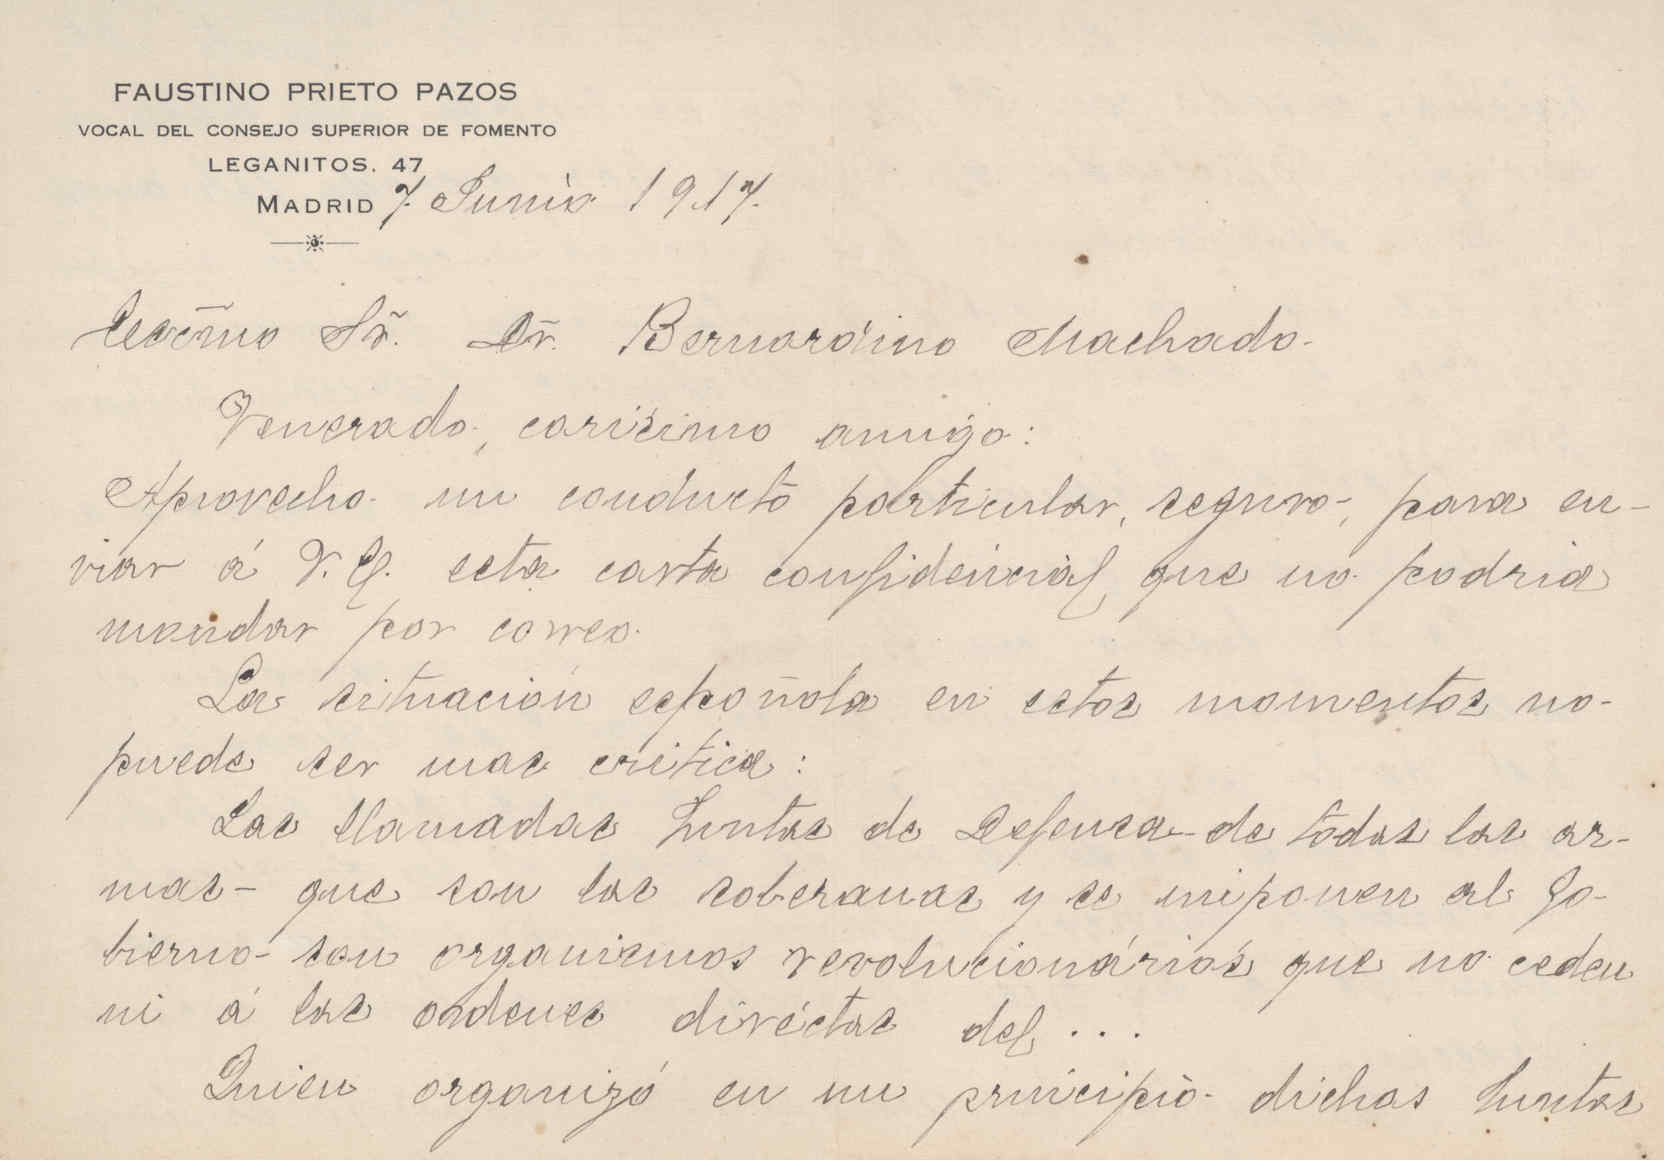 FAUSTINO PRIETO PAZOS
VOCAL DEL CONSEJO SUPERIOR DE FOMENTO
LEGANITOS, 47
MADRID 7 Junio 1917.
Excm̃o Sr̃. Dr̃. Bernardino Machado.
Venerado, carisimo amigo:
Aprovecho un conducto particular, seguro, para en-
viar á V. E. esta carta confidencial, que no podria
mandar por correo.
La situación española en estos momentos no
puede ser mas critica:
Las llamadas Juntas de Defensa - de todas las ar-
mas - que son las soberanas y se imponen al Go-
bierno - son organismos revolucionários que no ceden
ni á las ordenes diréctas del ...
Quien organizó en un principio dichas Juntas